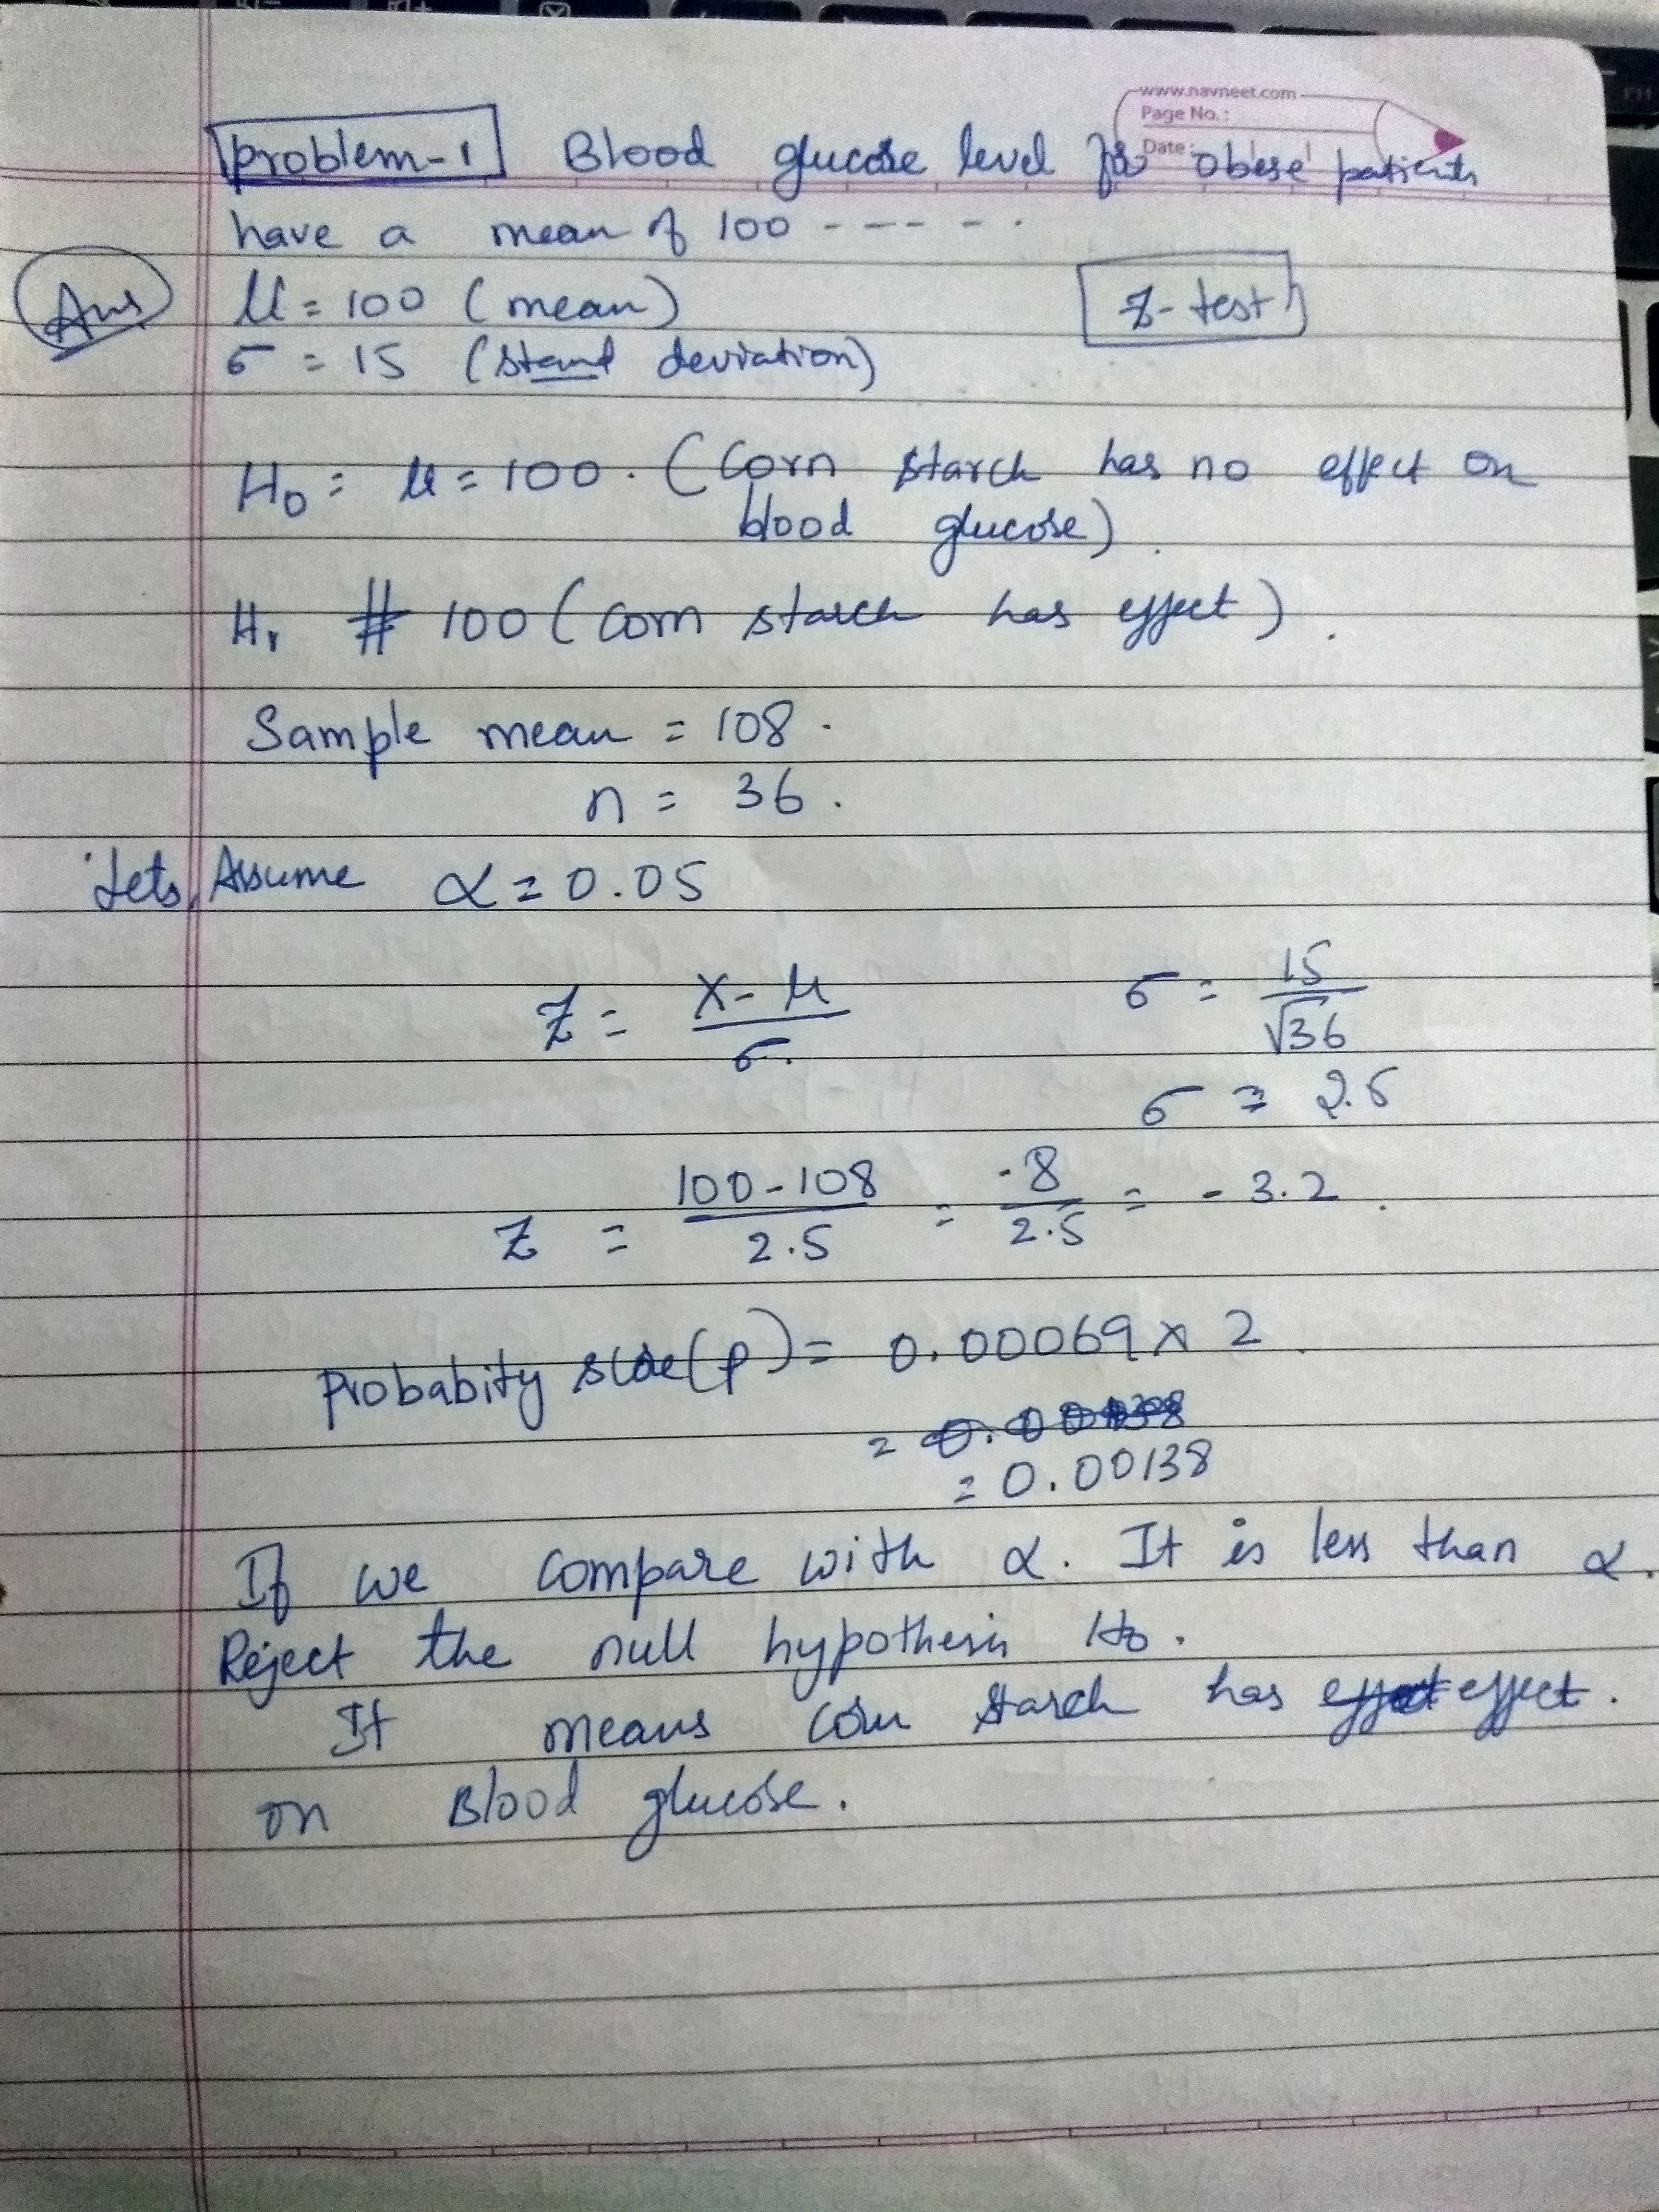 www.navneet.com
Page No.:
Date:
Problem-1 Blood glucose level for obese patients
have a mean of 100 ------.
Ans
μ = 100 (mean)
z-test
σ = 15 (stand deviation)
H0 = μ = 100. (Corn starch has no effect on
blood glucose).
H1 ≠ 100 (corn starch has effect).
Sample mean = 108.
n = 36.
Lets Assume α = 0.05
Z = X-μ / σ. σ = 15 / √36
σ = 2.5
Z = 100-108 / 2.5 = -8 / 2.5 = -3.2.
Probabity (p) = 0.00069 x 2.
=
= 0.00138
If we compare with α. It is less than α.
Reject the null hypothesis H0.
It means corn starch has effect.
on Blood glucose.